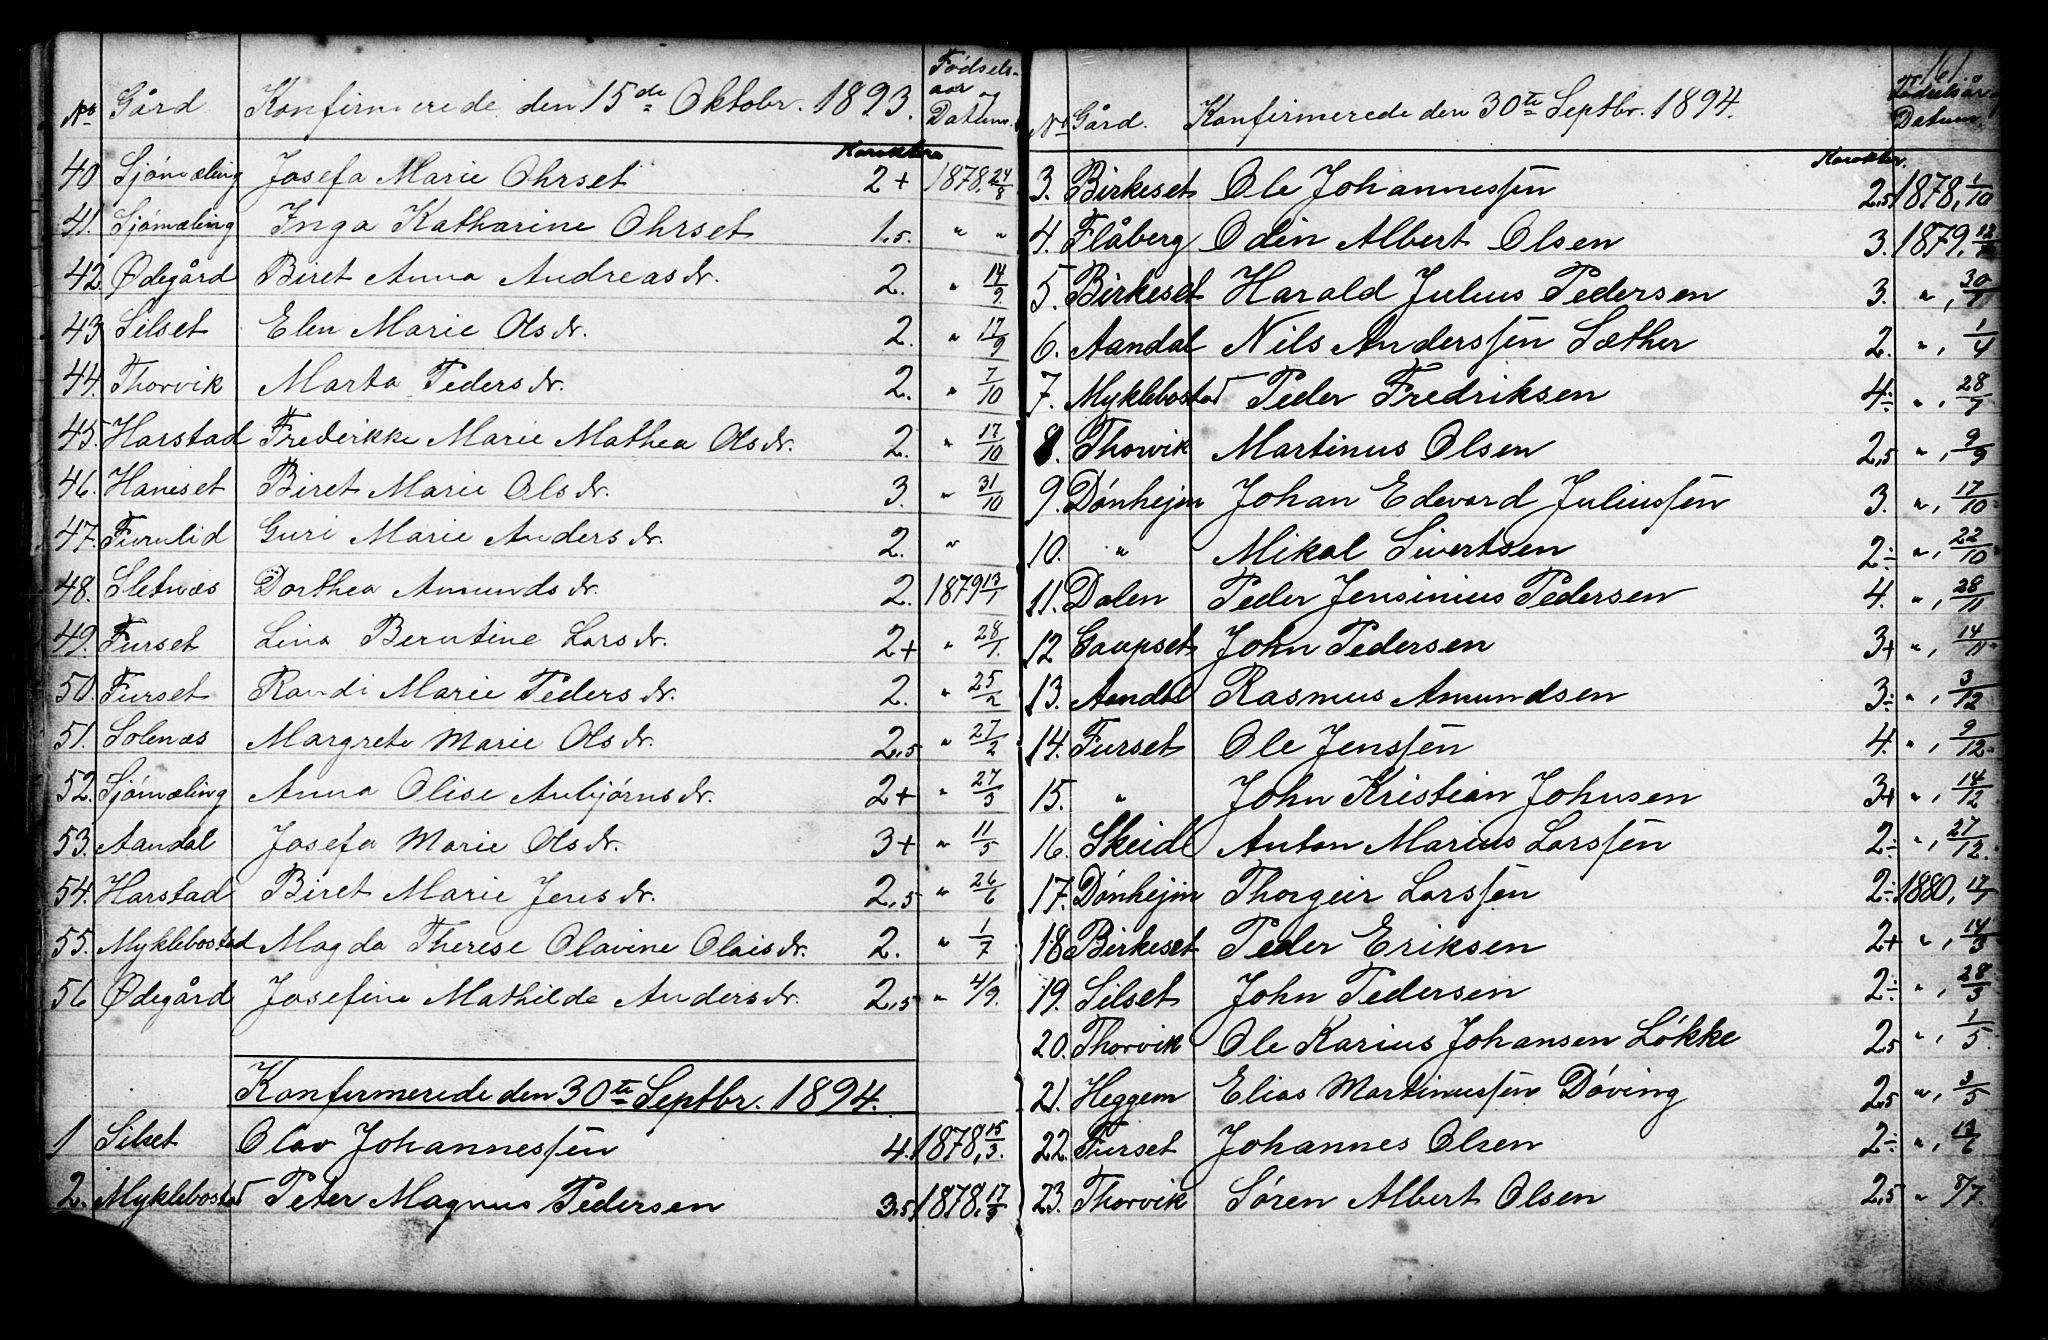 No Gård Konfirmerede den 15de Oktobr. 1893. Fødsels-aar og Datum.
Karakter
40 Sjömæling Josefa Marie Ohrset 2+ 1878, 24/8
41. Sjömæling Inga Katharine Ohrset 1,5. " "
42 Ödegård Biret Anna Andreasdr. 2. " 14/9
43 Silset Elen Marie Olsdr. 2. " 17/9
44. Thorvik Marta Pedersdr. 2. " 7/10
45. Harstad Frederikke Marie Mathea Olsdr. 2. " 17/10
46. Haneset Biret Marie Olsdr. 3. " 31/10
47. Furulid Guri Marie Andersdr. 2. "
48. Sletnæs Dorthea Amundsdr. 2. 1879 13/1
49. Furset Lina Berntine Larsdr. 2+ " 28/1.
50. Furset Randi Marie Pedersdr. 2. " 25/2
51. Solenæs Margrete Marie Olsdr. 2,5 " 27/2
52. Sjömæling Anna Olise Anbjörnsdr. 2+ " 27/3
53. Aandal Josefa Marie Olsdr. 3+ " 11/5
54. Harstad Biret Marie Jensdr. 2,5 " 26/6
55. Myklebostad Magda Therese Olavine Olaisdr. 2. " 1/7
56 Ödegård Josefine Mathilde Andersdr. 2,5 " 4/9.
Konfirmerede den 30te Septbr. 1894.
1 Silset Olav Johannessen 4. 1878, 15/3.
2. Myklebostad Peter Magnus Pedersen 3,5 1878, 17/3
161.
No Gård. Konfirmerede den 30te Septbr. 1894. Fødselsår og Datum.
Karakter
3. Birkeset Ole Johannessen 2,5 1878, 1/10
4. Flåberg Odin Albert Olsen 3. 1879,
5. Birkeset Harald Julius Pedersen 3. ", 30/1
6. Aandal Nils Anderssen Sæther 2. ", 1/4
7. Myklebostad Peder Fredriksen 4÷ ", 28/7
8. Thorvik Martinus Olsen 2,5 ", 9/9
9. Dönhejm Johan Edevard Juliussen 3. ", 17/10
10. " Mikal Sivertsen 2÷ ", 22/10
11. Dalen Peder Jensinius Pedersen 4. ", 28/11
12 Gaupset John Pedersen 3+ ", 14/11
13. Aandal Rasmus Amundsen 3÷ ", 3/12
14. Furset Ole Jenssen 4. ", 9/12.
15. " John Kristian Johnsen 3+ ", 14/12
16. Skeidl Anton Marius Larssen 2÷ ", 27/12.
17. Dönhejm Thorgeir Larssen 2÷ 1880, 17/1
18 Birkeset Peder Eriksen 2+ ", 14/3
19. Silset John Pedersen 2÷ ", 28/3
20. Thorvik Ole Karius Johansen Lökke 2,5 ", 1/5.
21. Heggem Elias Martinussen Döving 2,5 ", 3/5
22. Furset Johannes Olsen 2÷ ", 13/6
23. Thorvik Sören Albert Olsen 2,5 " 8/7.